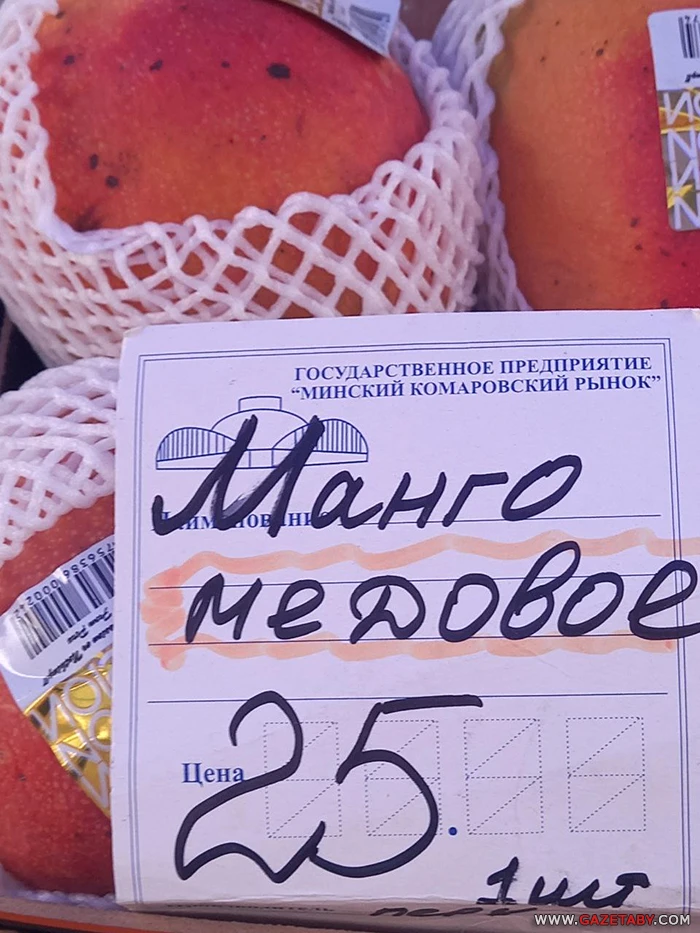 ГОСУДАРСТВЕННОЕ ПРЕДПРИЯТИЕ
“МИНСКИЙ КОМАРОВСКИЙ РЫНОК”
Манго
медовое
Цена
25.
1 шт
WWW.GAZETABY.COM